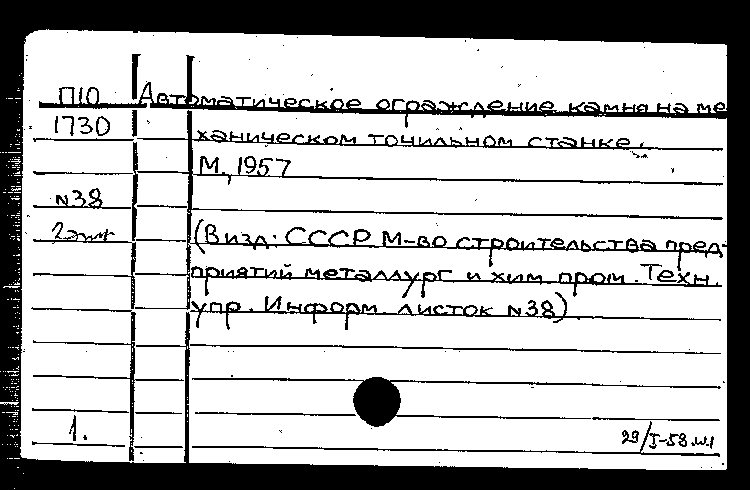 П10 Автоматическое ограждение камня на ме
1730 ханическом точильном станке.
М., 1957
N38
2 экз (В изд: СССР М-во строительства пред-
приятий металлург и хим. пром. Техн.
упр. Информ. листок N38)
1. 29/I-58